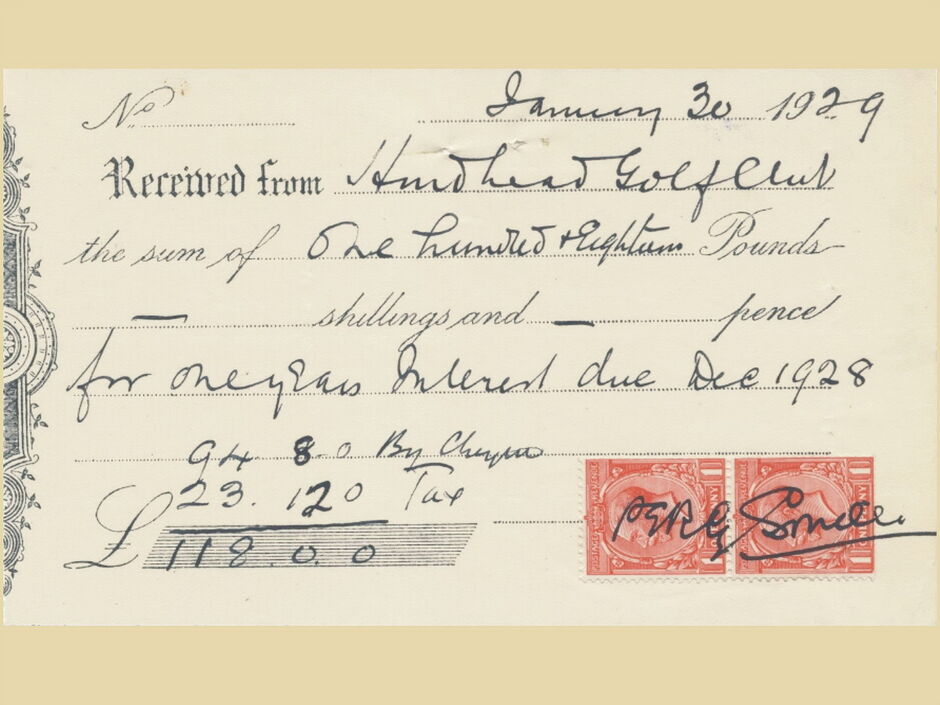 No January 30 1929
Received from Hindhead Golf Club
the sum of One hundred & Eighteen Pounds
— shillings and — pence
for one years Interest due Dec 1928
94 8. 0 By Cheque
23. 12 0 Tax
£ 118. 0. 0
POSTAGE REVENUE
ONE PENNY